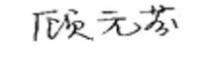 顾元芬